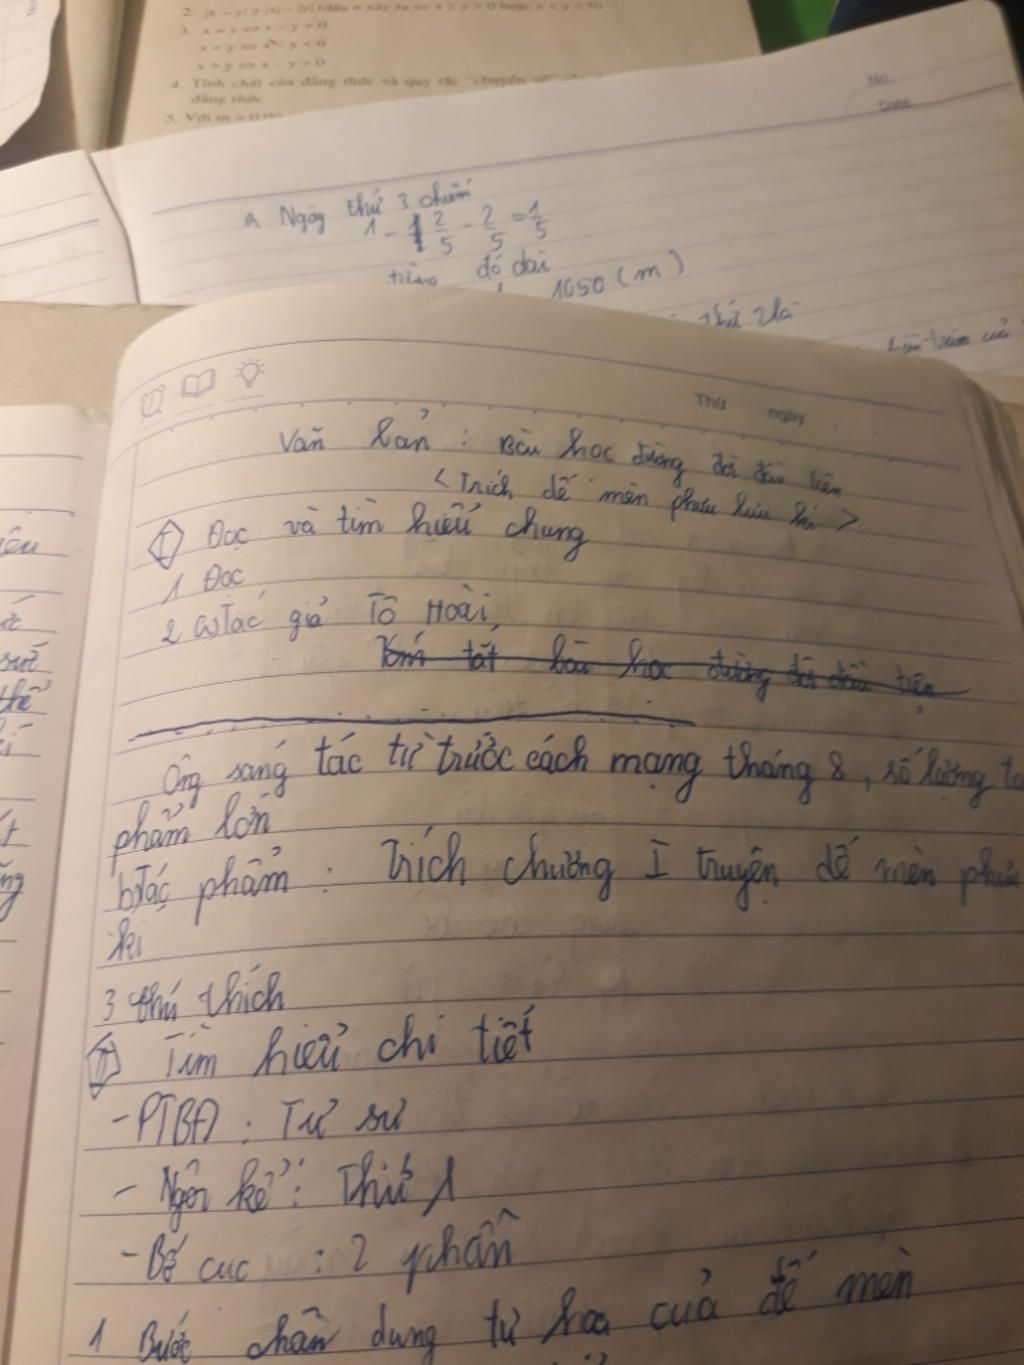 2. |x - y| ≥ |x| - |y| (dấu = xảy ra ⇔ x ≥ y ≥ 0 hoặc x ≤ y ≤ 0)
3. x = y ⇔ x - y = 0
x < y ⇔ x - y < 0
x > y ⇔ x - y > 0
4. Tính chất của đẳng thức và quy tắc "chuyển vế"
đẳng thức.
5. Với m > 0 thì
No.
Date
a Ngày thứ 3 chiếm
1 - 2/5 - 2/5 = 1/5
độ dài
1050 (m)
thứ 2 là
Thứ ngày
Văn bản : Bài học đường đời đầu tiên
< Trích dế mèn phưu lưu kí >
I Đọc và tìm hiểu chung
1 Đọc
2 a) Tác giả Tô Hoài,
Tóm tắt bài học đường đời đầu tiên
Ông sáng tác từ trước cách mạng tháng 8, số lượng tá
phẩm lớn
b) Tác phẩm : Trích chương I truyện dế mèn phưu
kí
3 thú thích
II Tìm hiểu chi tiết
- PTBĐ : Tự sự
- Ngôi kể : Thứ 1
- Bố cục : 2 phần
1 Bước chân dung tự hoạ của dế mèn